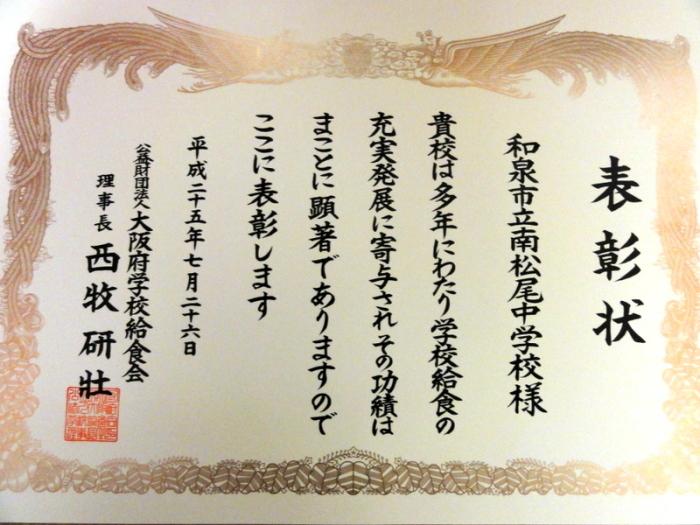 表彰状
和泉市立南松尾中学校様
貴校は多年にわたり学校給食の
充実発展に寄与されその功績は
まことに顕著でありますので
ここに表彰します
平成二十五年七月二十六日
公益財団法人大阪府学校給食会
理事長 西牧研壮